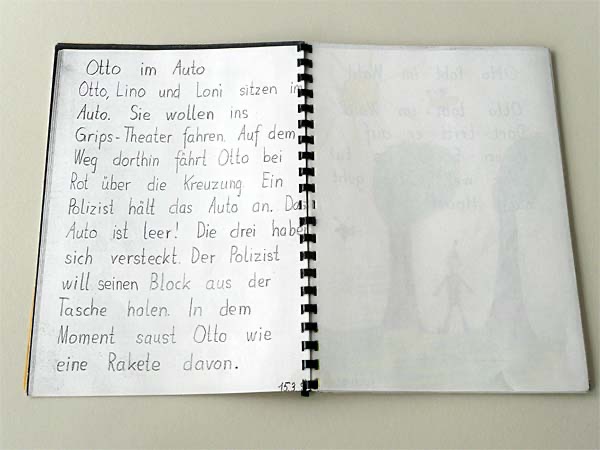 Otto im Auto
Otto, Lino und Loni sitzen im
Auto. Sie wollen ins
Grips-Theater fahren. Auf dem
Weg dorthin fährt Otto bei
Rot über die Kreuzung. Ein
Polizist hält das Auto an. Das
Auto ist leer! Die drei haben
sich versteckt. Der Polizist
will seinen Block aus der
Tasche holen. In dem
Moment saust Otto wie
eine Rakete davon.
15.3.